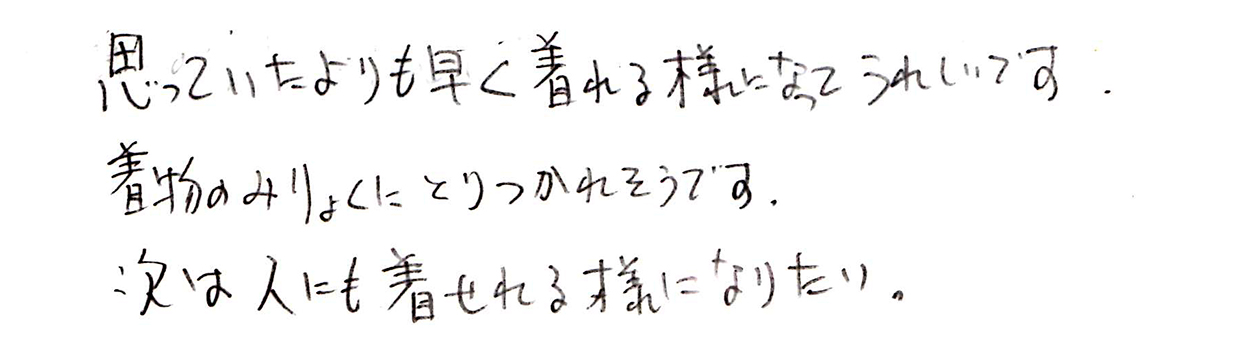 思っていたよりも早く着れる様になってうれしいです.
着物のみりょくにとりつかれそうです.
次は人にも着せれる様になりたい。